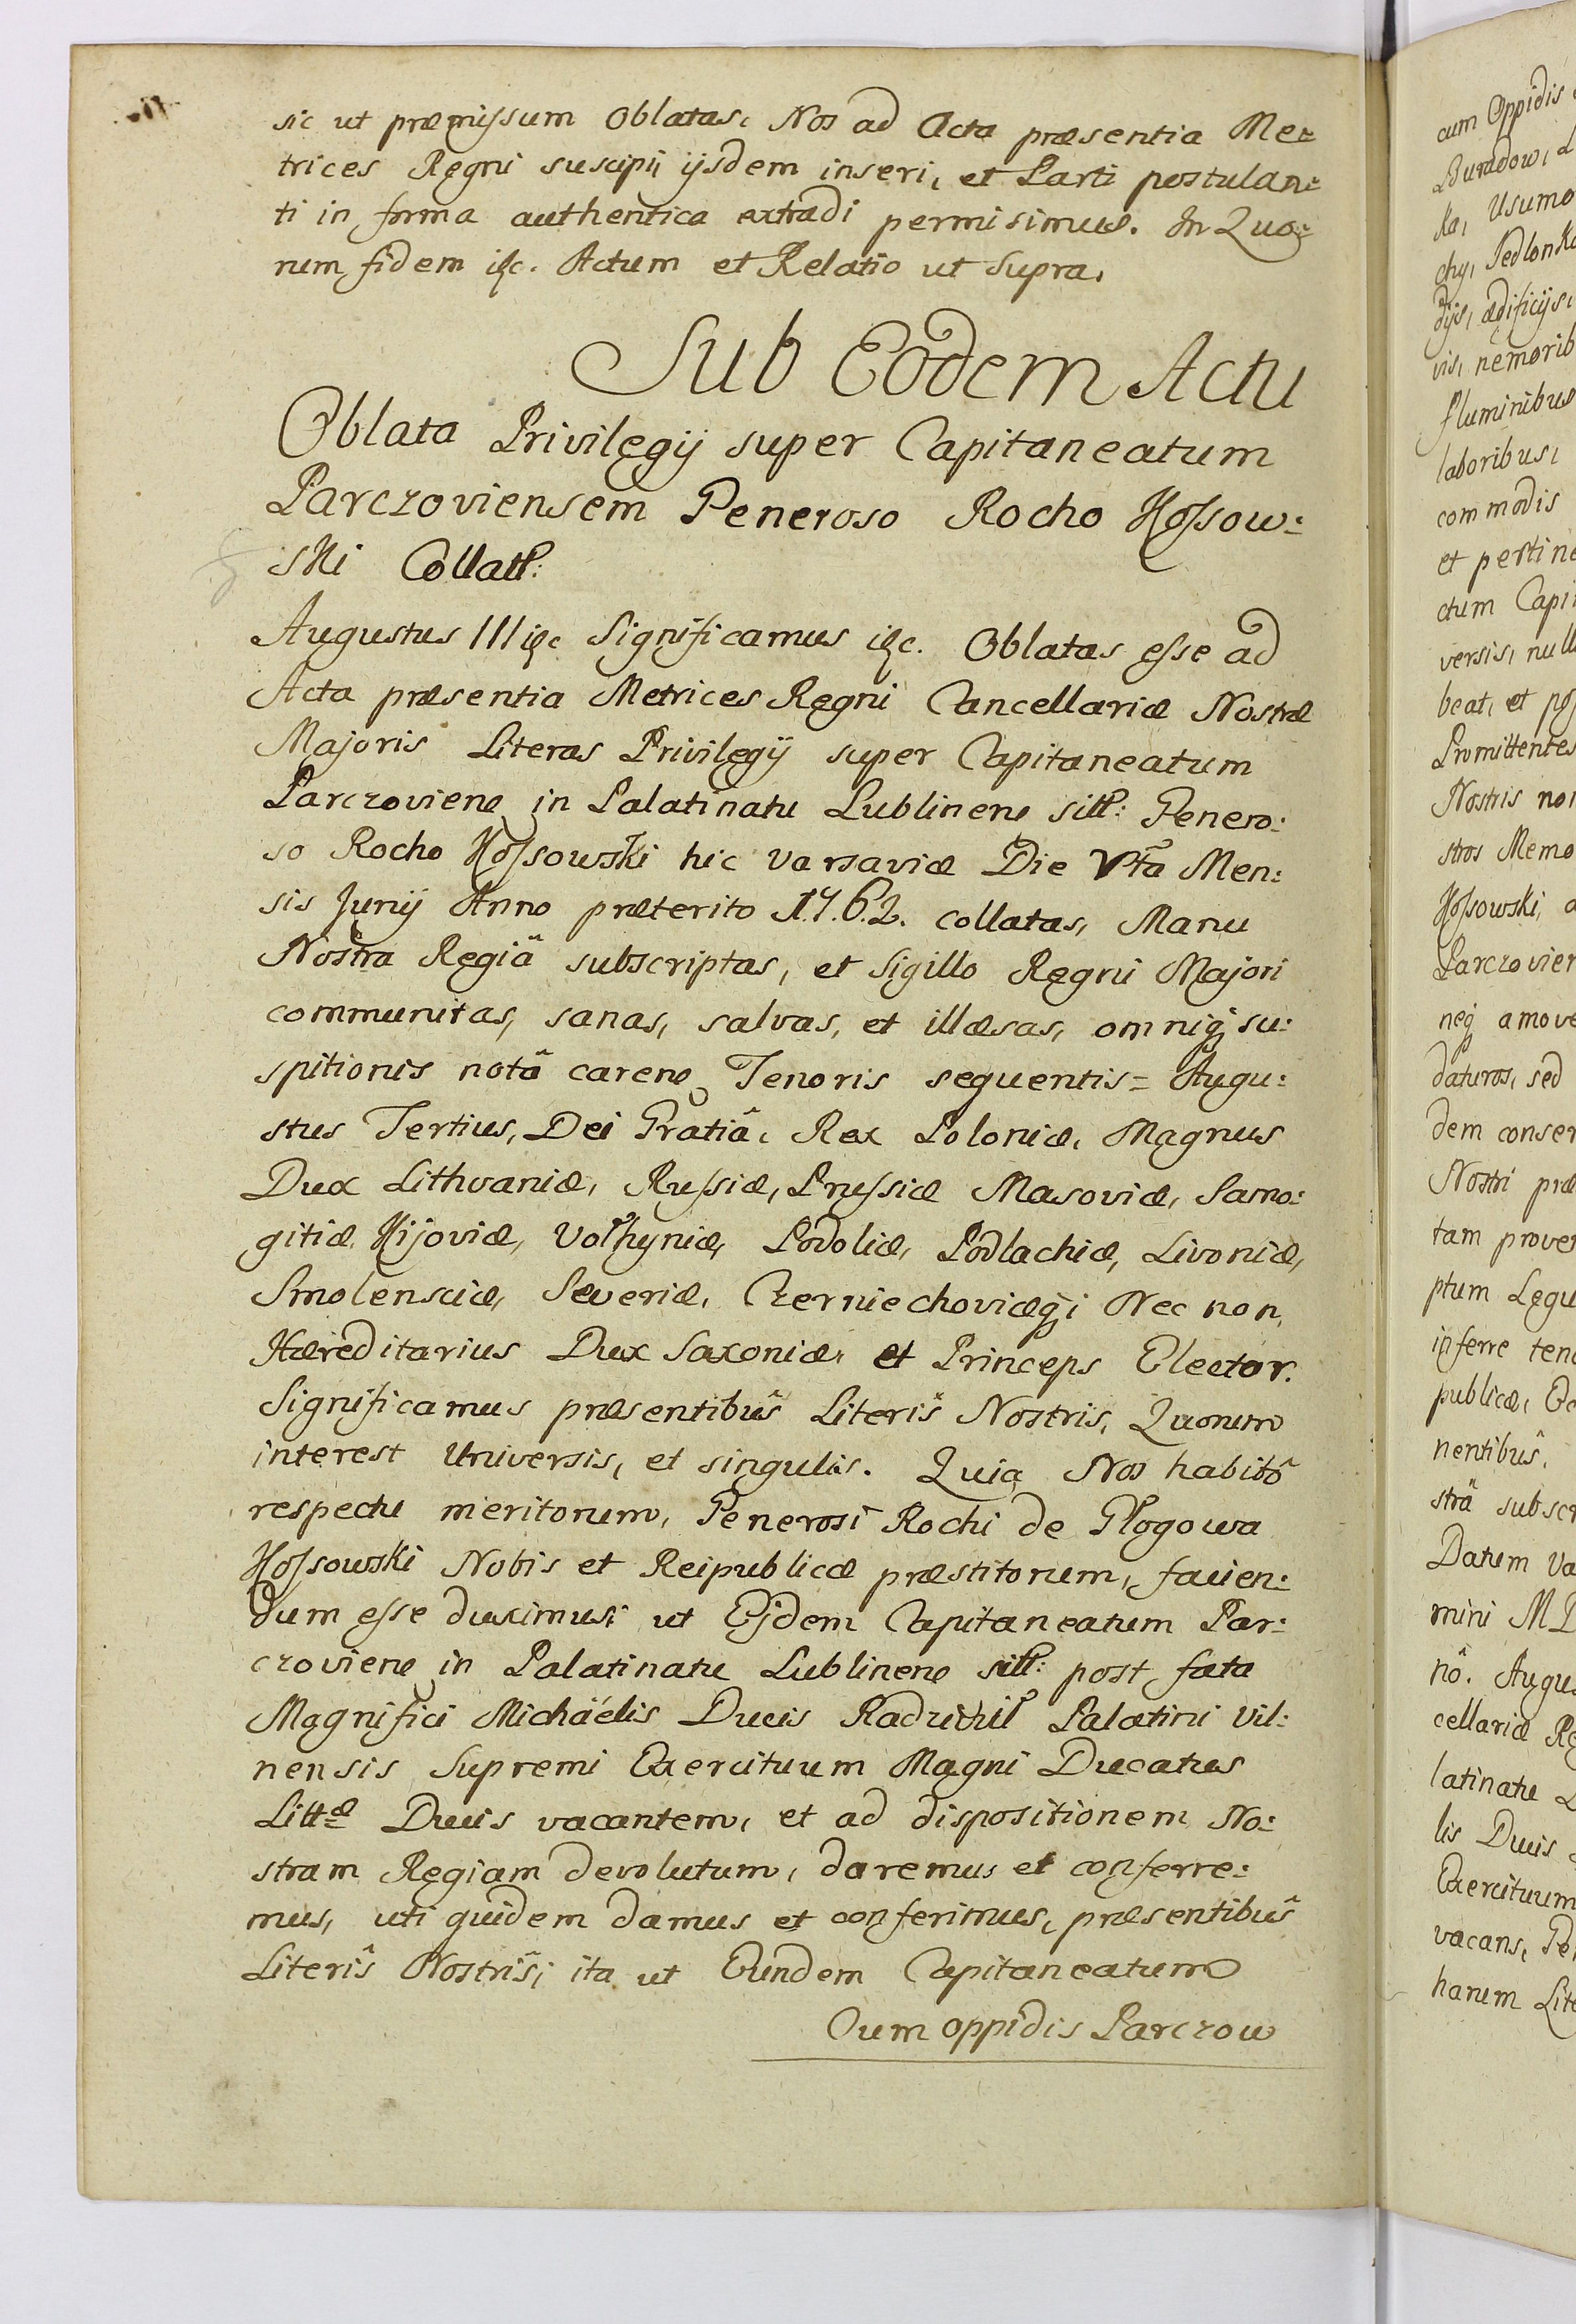 sic ut præmissum Oblatas, Nos ad Acta præsentia Me=
trices Regni suscipi, ijsdem inseri, et Parti postulan=
ti in forma authentica extradi permisimus. In Quo=
rum fidem &c. Actum et Relatio ut Supra.
Sub Eodem Actu
Oblata Privilegij super Capitaneatum
Parczoviensem Generoso Rocho Kossow:
ski Collatt:
Augustus III &c Significamus &c. Oblatas esse ad
Acta præsentia Metrices Regni Cancellariæ Nostræ
Majoris Literas Privilegij super Capitaneatum
Parczovien in Palatinatu Lublinen sitt: Genero:
so Rocho Kossowski hic Varsaviæ Die Vta Men:
sis Junij Anno præterito 1.7.6.2. collatas, Manu
Nostra Regiâ subscriptas, et Sigillo Regni Majori
communitas, sanas, salvas, et illæsas, omniq; su:
spitionis notâ caren Tenoris sequentis= Augu:
stus Tertius, Dei Gratiâ, Rex Poloniæ, Magnus
Dux Lithvaniæ, Russiæ, Prussiæ Masoviæ, Samo:
gitiæ, Kijoviæ, Vołhyniæ, Podoliæ, Podlachiæ, Livoniæ,
Smolensciæ, Severiæ, Czerniechoviæq; Nec non
Hæreditarius Dux Saxoniæ, et Princeps Elector.
Significamus præsentibûs Literis Nostris, Quorum
interest Universis, et singulis. Quia Nos habitô
respectu meritorum, Generosi Rochi de Głogowa
Kossowski Nobis et Reipublicæ præstitorum, facien:
dum esse duximus; ut Ejdem Capitaneatum Par:
czovien in Palatinatu Lublinen sitt: post fata
Magnifici Michäelis Ducis Radziwił Palatini Vil:
nensis Supremi Exercituum Magni Ducatus
Littæ Ducis vacantem, et ad dispositionem No:
stram Regiam devolutum, daremus et conferre:
mus, uti quidem damus et conferimus, præsentibûs
Literîs Nostrîs; ita ut Eundem Capitaneatum
Cum oppidis Parczow
cum Oppidis
ka, Usumo
dijs, ædificijs,
vis, nemorib
fluminibus
laboribus,
commodis
et pertine
ctum Capi
versis, null
beat, et pos
Promittentes
Nostris non
stros Memo
Kossowski, a
Parczovien
neq amove
daturos, sed
dem conser
Nostri præ
tam prover
ptum Legu
inferre ten
publicæ, Ec
nentibûs.
strâ subscr
Datum Va
mini MD
nô. Augu
cellariæ Re
latinatu L
lis Ducis
Exercituum
vacans, Ge
harum Lite